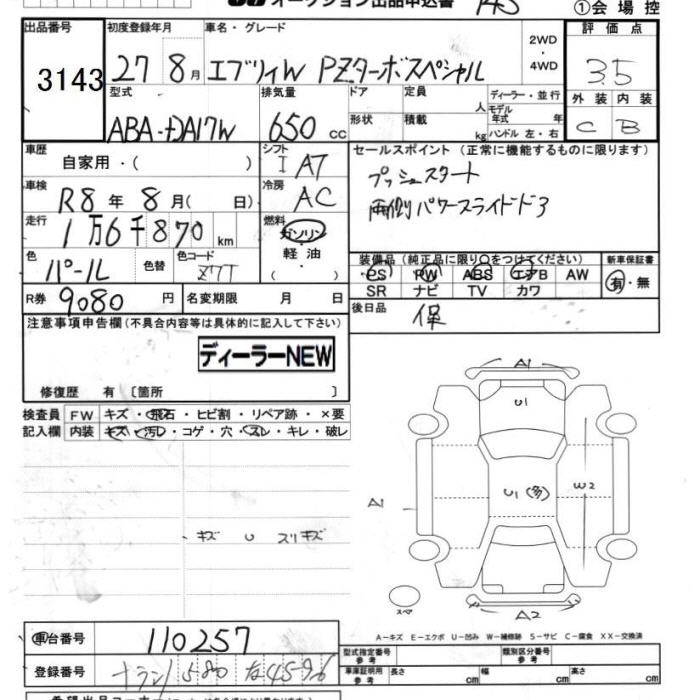 オークション出品申込書
①会場控
出品番号
3143
初度登録年月
27 8月
車名・グレード
エブリィW PZターボスペシャル
2WD
・
4WD
評価点
3.5
型式
ABA-DA17W
排気量
650 cc
ドア
形状
定員 人
積載 kg
ディーラー・並行
モデル年式 年
ハンドル 左・右
外装 内装
C B
車歴
自家用・( )
シフト
I AT
セールスポイント (正常に機能するものに限ります)
プッシュスタート
両側パワースライドドア
車検
R8年 8月( 日)
冷房
AC
走行
1万6千870 km
燃料
ガソリン
・
軽油
( )
色
パール
色替
色コード
Z7T
装備品 (純正品に限り○をつけてください)
新車保証書
PS PW ABS エアB AW
有・無
SR ナビ TV カワ
R券 9080 円
名変期限 月 日
後日品
保
注意事項申告欄(不具合内容等は具体的に記入して下さい)
ディーラーNEW
修復歴 有〔箇所 〕
検査員
記入欄
FW キズ・飛石・ヒビ割・リペア跡・×要
内装 キズ・汚レ・コゲ・穴・スレ・キレ・破レ
キズ U スリキズ
A1
U1
A1
U1(多)
W2
スペア
A2
A-キズ E-エクボ U-凹み W-補修跡 S-サビ C-腐食 XX-交換済
車台番号
110257
登録番号
580 4596
型式指定番号
参考
類別区分番号
参考
車庫証明用
参考
長さ cm
幅 cm
高さ cm